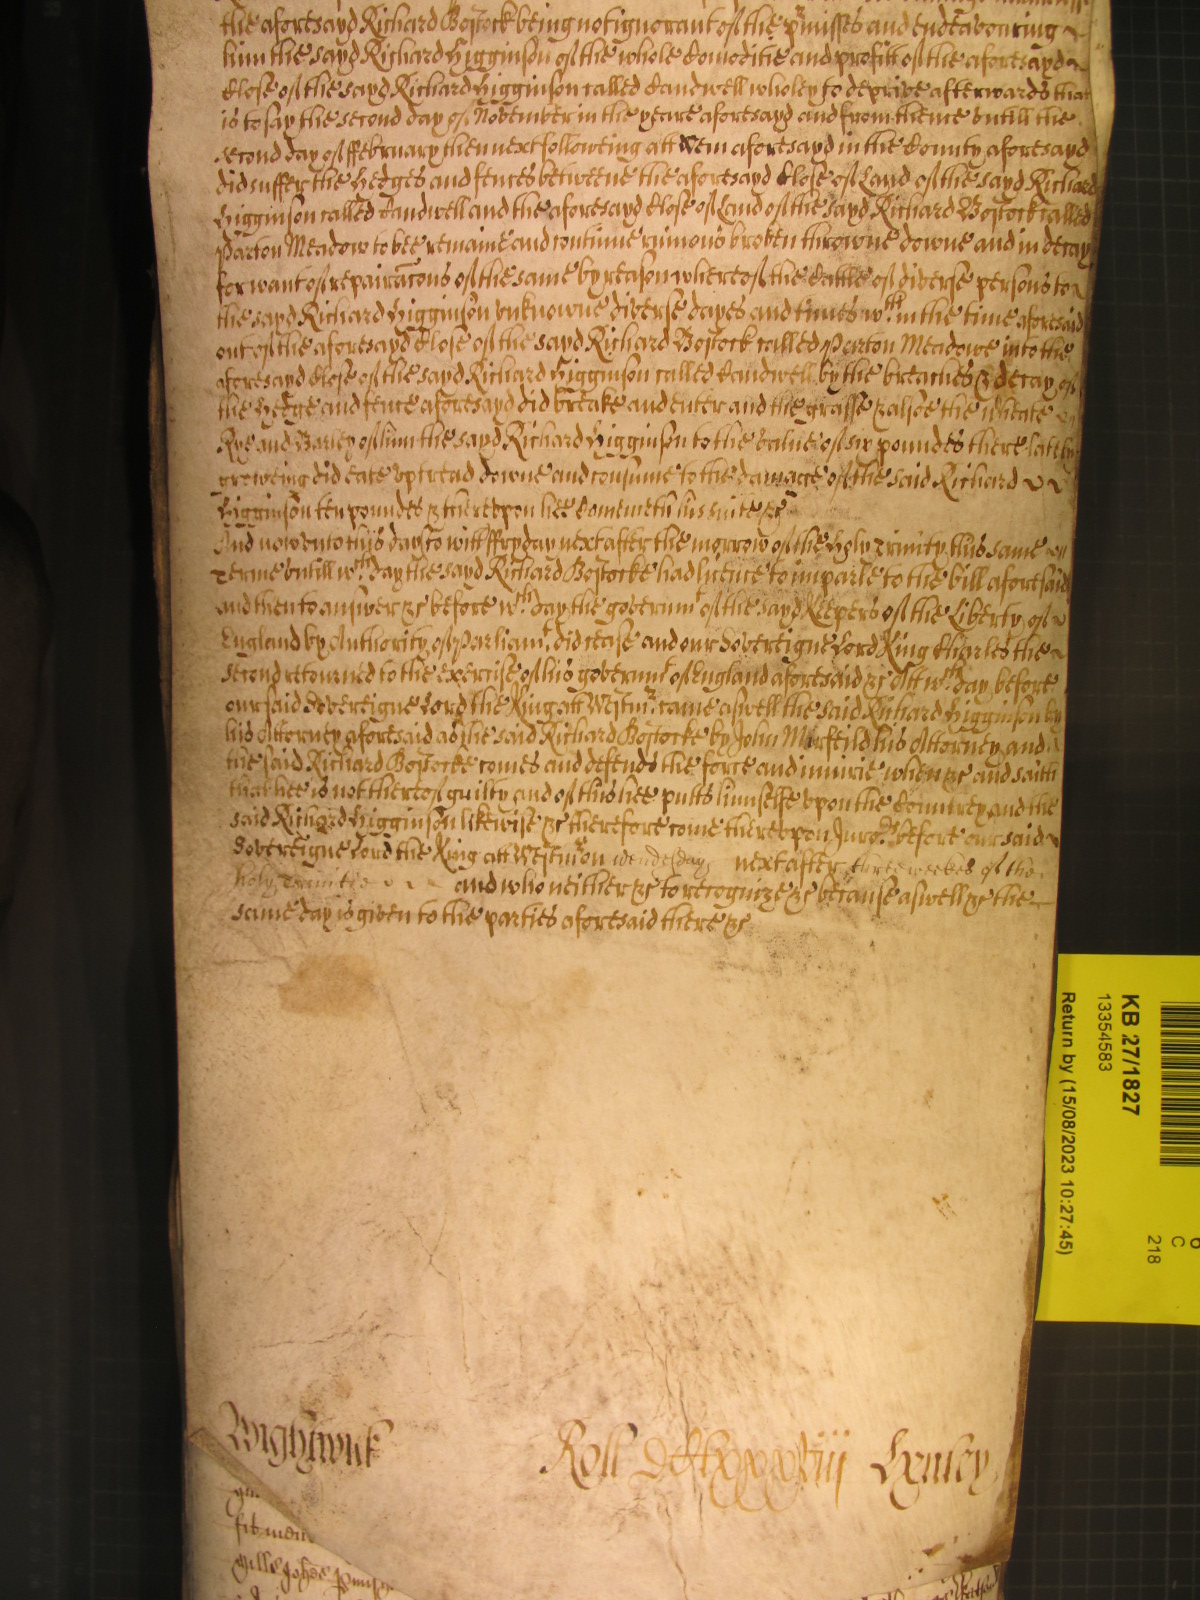 the aforesayd Richard Bostock being not ignorant of the p'misses and endeavouring
him the sayd Richard Higginson of the whole Comoditie and profitt of the aforesayd
Close of the sayd Richard Higginson called Candwell wholey to deprive afterwards that
is to say the second day of November in the yeare aforesayd and from thence untill the
second day of ffebruary then next following att Wem aforesayd in the County aforesayd
did suffer the Hedges and fences betweene the aforesayd Close of Land of the sayd Richard
Higginson called Candwell and the aforesayd Close of Land of the sayd Richard Bostock called
Parton Meadow to bee remaine and continue ruinous broken throwne downe and in decay
for want of repairacons of the same by reason whereof the Cattle of diverse persons to
the sayd Richard Higginson unknowne diverse dayes and times wth.in the time aforesaid
out of the aforesayd Close of the sayd Richard Bostock called Parton Meadowe into the
aforesayd Close of the sayd Richard Higginson called Candwell by the breaches & decay of
the Hedge and fence aforesayd did breake and enter and the grasse & alsoe the wheate
Rye and Barley of him the sayd Richard Higginson to the value of six poundes there lately
groweing did eate up tread downe and consume to the damage of the said Richard
Higginson ten poundes & thereupon hee comemeth his suite &c
And now unto this day to witt ffryday next after the morrow of the Holy Trinity this same
Terme untill wch. day the sayd Richard Bostocke had licence to imparle to the bill aforesaid
and then to answer &c before wch. day the governmt of the sayd Keepers of the Liberty of
England by Authority of Parliamt. did cease and our Sovereigne Lord King Charles the
Second retourned to the exercise of his governmt of England aforesaid &c Att wch. day before
our said Sovereigne Lord the King att Westmr. came aswell the said Richard Higginson by
his Attorney aforesaid as the said Richard Bostocke by John Marfeild his Attorney and
the said Richard Bostocke comes and defends the force and iniurie when &c and saith
that hee is not thereof guilty and of this hee putts himselfe upon the Countrey and the
said Richard Higginson likewise &c therefore come thereupon Juro.rs before our said
Sovereigne Lord the King att Westmr on wendesday next after three weekes of the
holy Trinitie and who neither &c to recognize &c because aswell &c the
same day is given to the parties aforesaid there &c
Wightwick
Roll Henley
KB 27/1827
13354583
Return by (15/08/2023 10:27:45)
C
218